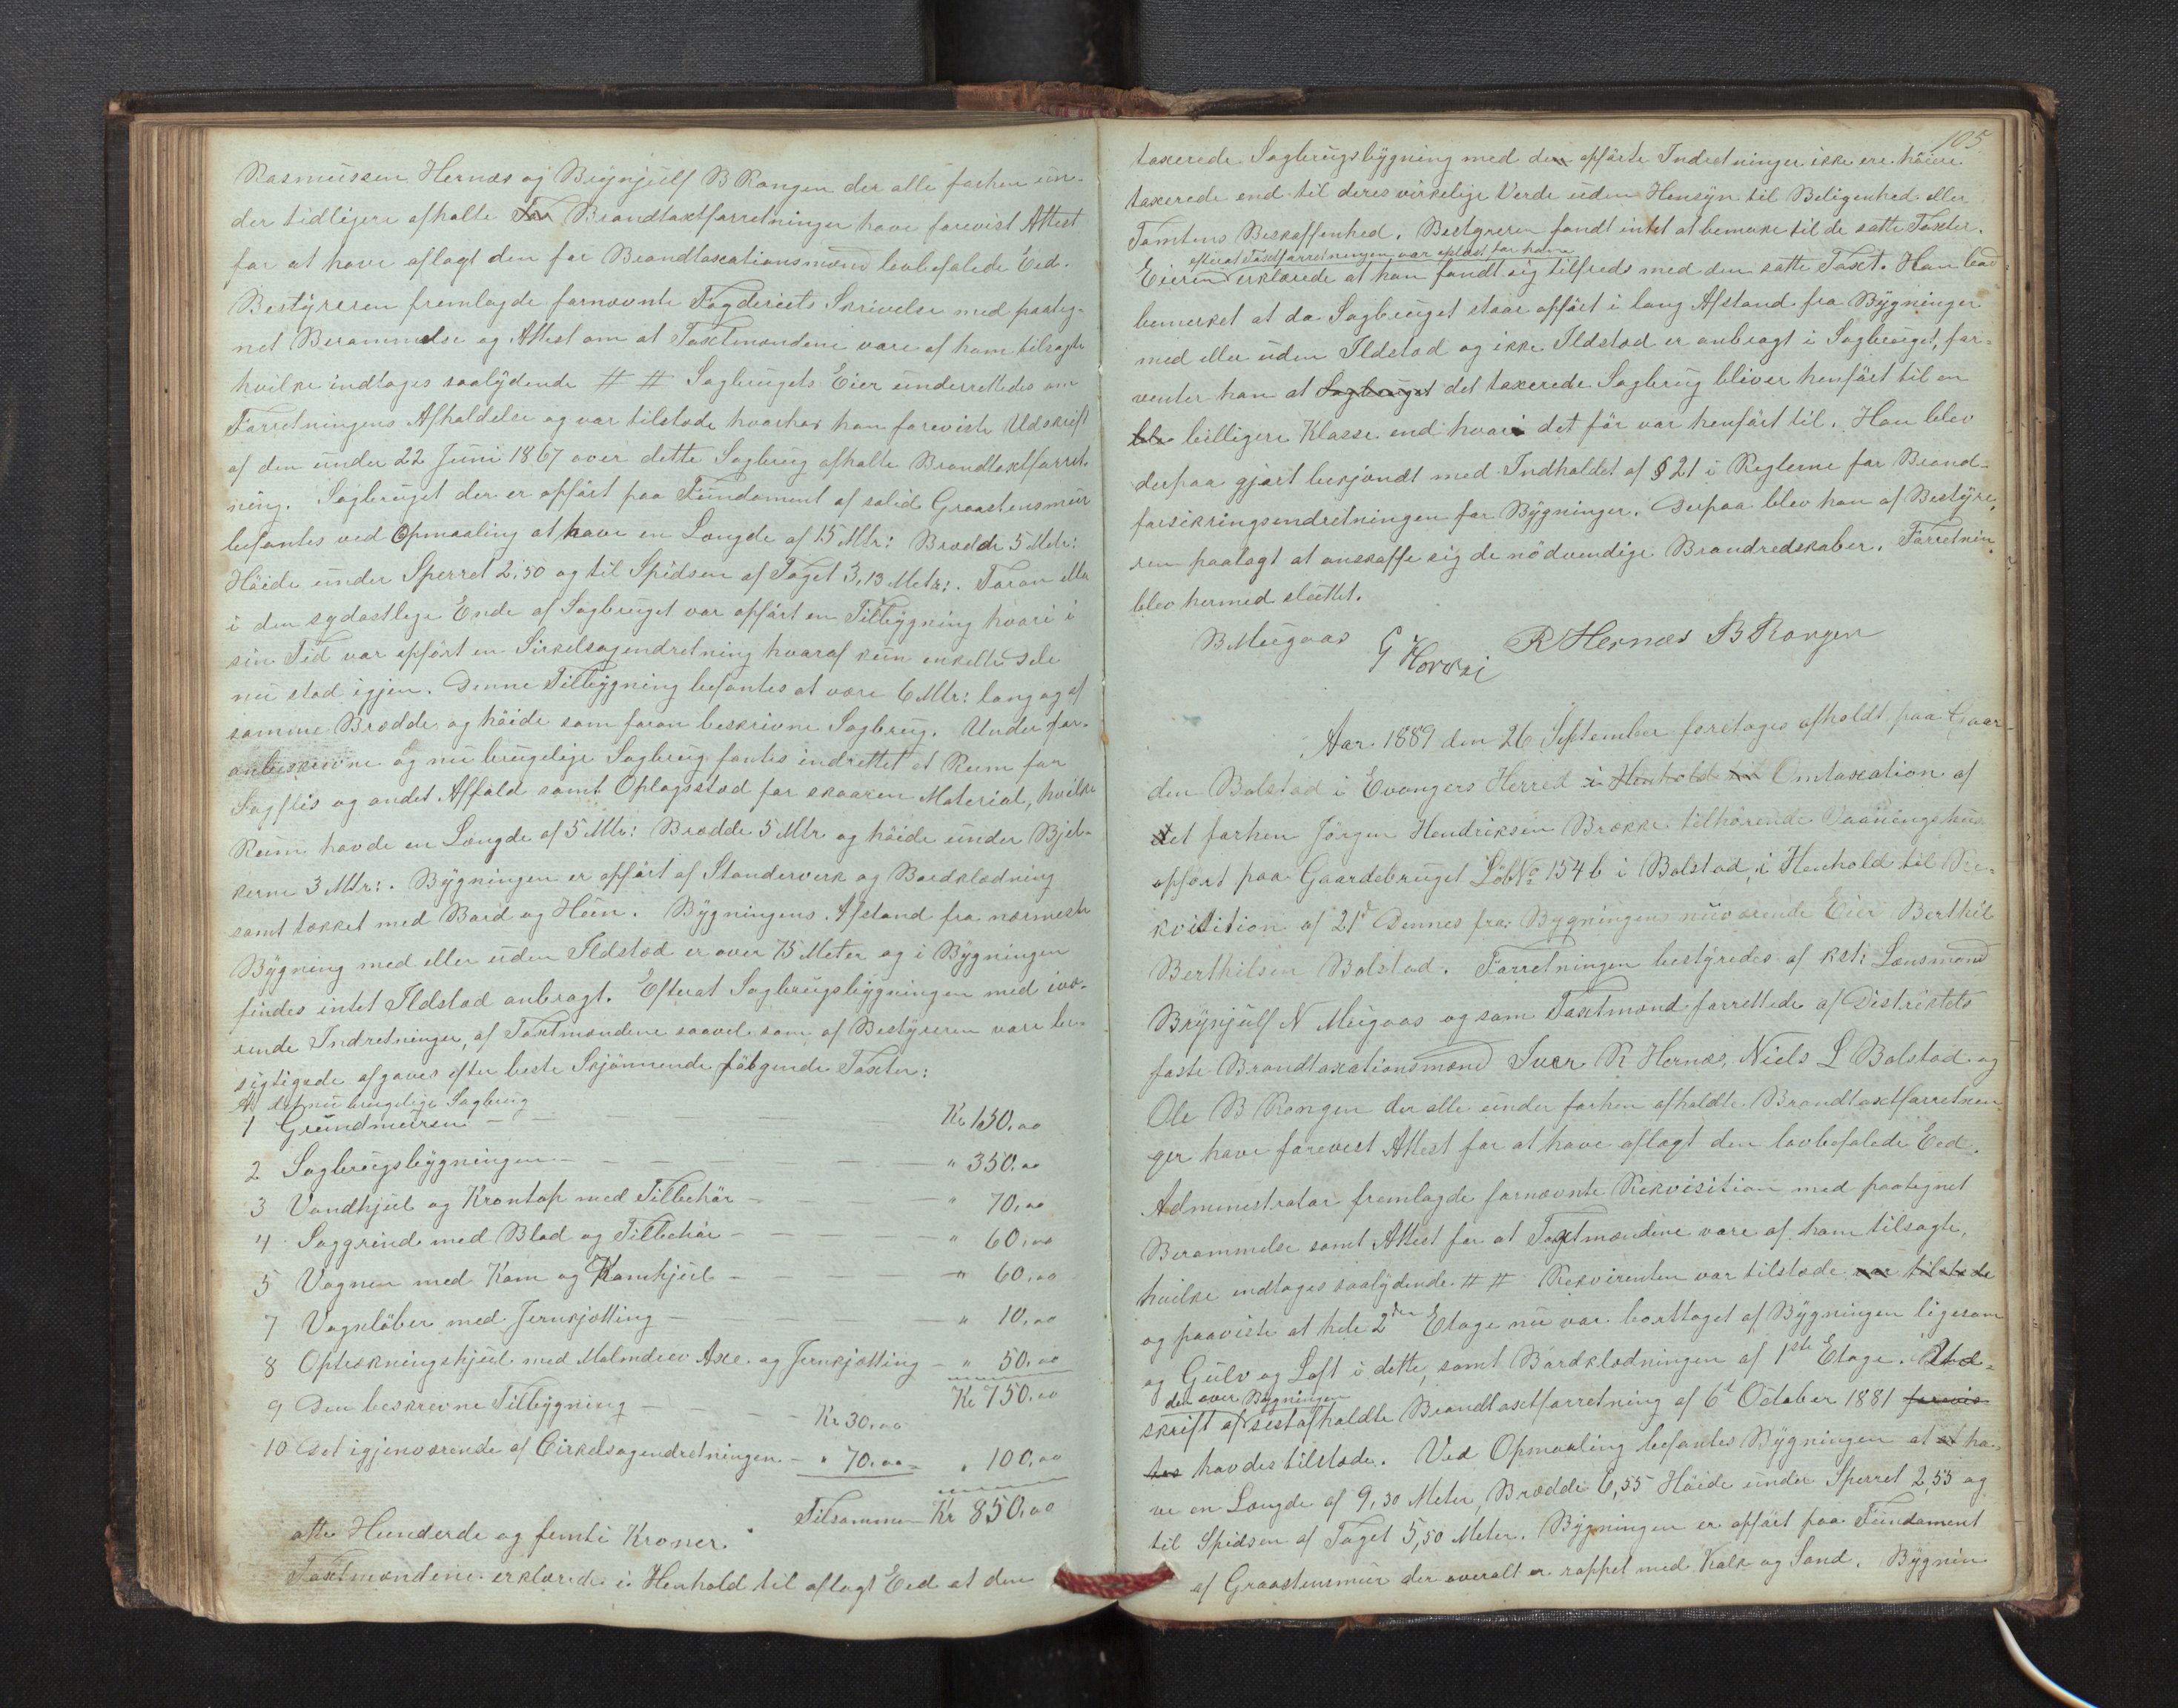 Rasmussen Hernæs og Brynjulf B Rongen der alle forhen un-
der tidligere afholte Brandtaxtforretninger have forevist Attest
for at have aflagt den for Brandtaxationsmænd lovbefalede Eed.
Bestyreren fremlagde fornævnte Fogderiets Skrivelse med paateg-
net Berammelse og Attest om at Taxtmændene vare af ham tilsagte
hvilke indtages saalydende # # Sagbrugets Eier underrettedes om
Forretningens Afholdelse og var tilstede hvorhos han foreviste Udskrift
af den under 22 Juni 1867 over dette Sagbrug afholte Brandtaxtforret-
ning. Sagbruget der er opført paa Fundament af solid Graastensmur
befantes ved Opmaaling at have en Længde af 15 Mtr: Bredde 5 Metr:
Höide under Sperret 2,50 og til Spidsen af Taget 3,13 Metr:. Foran eller
i den sydostlege Ende af Sagbruget var opført en Tilbygning hvori i
sin Tid var opført en Sirkelsagendretning hvoraf kun enkelte Dele
nu stod igjen. Denne Tilbygning befantes at være 6 Mtr: lang og af
samme Bredde og höide som foran beskrivne Sagbrug. Under for-
anbeskrivne og nu brugelige Sagbrug fantes indrettet et Rum for
Sagflis og andet Affald samt Oplagsstad for skaaren Material, hvilke
Rum havde en Længde af 5 Mtr: Bredde 5 Mtr og höide under Bjel-
kerne 3 Mtr:. Bygningen er opført af Standerverk og Bordklædning
samt tækket med Bord og Heen. Bygningens Afstand fra nærmeste
Bygning med eller uden Ildsted er over 75 Meter og i Bygningen
findes intet Ildsted anbragt. Efterat Sagbrugsbygningen med ivæ-
rende Indretninger, af Taxtmændene saavel som af Bestyreren vare be-
sigtigede afgaves efter beste Skjønnende følgende Taxter:
A det nu brugelige Sagbrug
1 Grundmuren - Kr 150,00
2 Sagbrugsbygningen - " 350,00
3 Vandhjul og Krontap med Tilbehör - " 70,00
4 Saggrind med Blad og Tilbehör - " 60,00
5 Vognen med Kam og Kamhjul - " 60,00
7 Vognløber med Jernkjætting - " 10,00
8 Optrækningshjul med Axe og Jernkjætting - " 50,00
Kr 750,00
9 Den beskrevne Tilbygning - Kr 30,00
10 Det igjenværende af Cirkelsagendretningen - " 70,00 = " 100,00
Tilsammen Kr 850,00
otte Hunderde og femti Kroner.
Taxtmændene erklærede i Henhold til aflagt Eed at den
105
taxerede Sagbrugsbygning med den opførte Indretninger ikke ere höiere
taxerede end til deres virkelige Verde uden Hensyn til Beligenhed eller
Tomtens Beskaffenhed. Bestyreren fandt intet at bemerke til de satte Taxter.
efterat Taxtforretningen var oplæst for ham
Eieren erklærede at han fandt sig tilfreds med den satte Taxt. Han bad
bemerket at da Sagbruget staar opført i lang Afstand fra Bygninger
med eller uden Ildsted og ikke Ildsted er anbragt i Sagbruget, for-
venter han at Sagbruget det taxerede Sagbrug bliver henført til en
ble billigere Klasse end hvori det før var henført til. Han blev
derpaa gjort bekjendt med Indholdet af § 21 i Reglerne for Brand-
forsikringsendretningen for Bygninger. Derpaa blev han af Bestyre-
ren paalagt at anskaffe sig de nödvendige Brandredskaber. Forretnin
blev hermed sluttet.
B Mugaas G Horvei R Hernæs B Rongen
Aar 1889 den 26 September foretoges afholdt paa Gaar-
den Bolstad i Evangers Herred i Henhold til Omtaxation af
det forhen Jörgen Hendriksen Brække tilhørende Vaaningshus
opført paa Gaardsbruget Løb No 154 b i Bolstad, i Henhold til Re-
kvisition af 21d Dennes fra Bygningens nuværende Eier Berthil
Berthilsen Bolstad. Forretningen bestyredes af kst: Lensmand
Brynjulf N Mugaas og som Taxtmænd forrettede af Distriktets
faste Brandtaxationsmænd Iver R Hernæs, Niels L Bolstad og
Ole B Rongen der alle under forhen afholdte Brandtaxtforretnin-
ger have forevist Attest for at have aflagt den lovbefalede Eed.
Administrator fremlagde fornævnte Rekvisition med paategnet
Berammelse samt Attest for at Taxtmændene vare af ham tilsagte,
hvilke indtages saalydende # # Rekvirenten var tilstede var tilstede
og paaviste at hele 2den Etage nu var borttaget af Bygningen ligesom
og Gulv og Loft i dette, samt Bordklædningen af 1ste Etage. Ud-
den over Bygningen
skrift af sist afholdte Brandtaxtforretning af 6t October 1881 forevis-
tes havdes tilstede. Ved Opmaaling befantes Bygningen at at ha-
ve en Længde af 9,30 Meter, Bredde 6,55 Höide under Sperret 2,55 og
til Spidsen af Taget 5,50 Meter. Bygningen er opført paa Fundament
af Graastensmur der overalt er rappet med Kalk og Sand. Bygnin